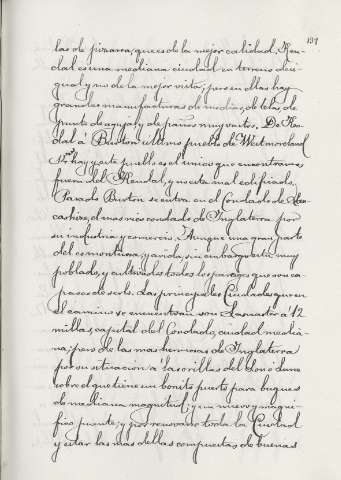 139
las de pizarra, que es de la mejor calidad. Ken-
dal es una mediana ciudad en terreno desi-
gual y no de la mejor vista; pero en ellas hay
grandes manufacturas de medias, de telas, de
punto de aguja y de paños muy vastos. De Ken-
dal á Burton último pueblo de Westmoreland
hay y este pueblo es el único que encontramos
fuera del Kendal, y no esta mal edificado.
Pasado Burton se entra en el Condado de Lan-
cashire, el mas rico condado de Inglaterra por
su industria y comercio. Aunque una gran parte
del es montuosa, y arida, sin embargo está muy
poblado, y cultivados todos los parages que son ca-
paces de serlo. Las principales Ciudades que en
el camino se encuentran son Lancaster á 12
millas, capital del Condado, ciudad media-
na; pero de las mas hermosas de Inglaterra
por su situacion á las orillas del
sobre el que tiene un bonito puerto para buques
de mediana magnitud; y un nuevo y magni-
fico puente; y por renovarse toda la Ciudad
y estar las mas dellas compuestas de buenas